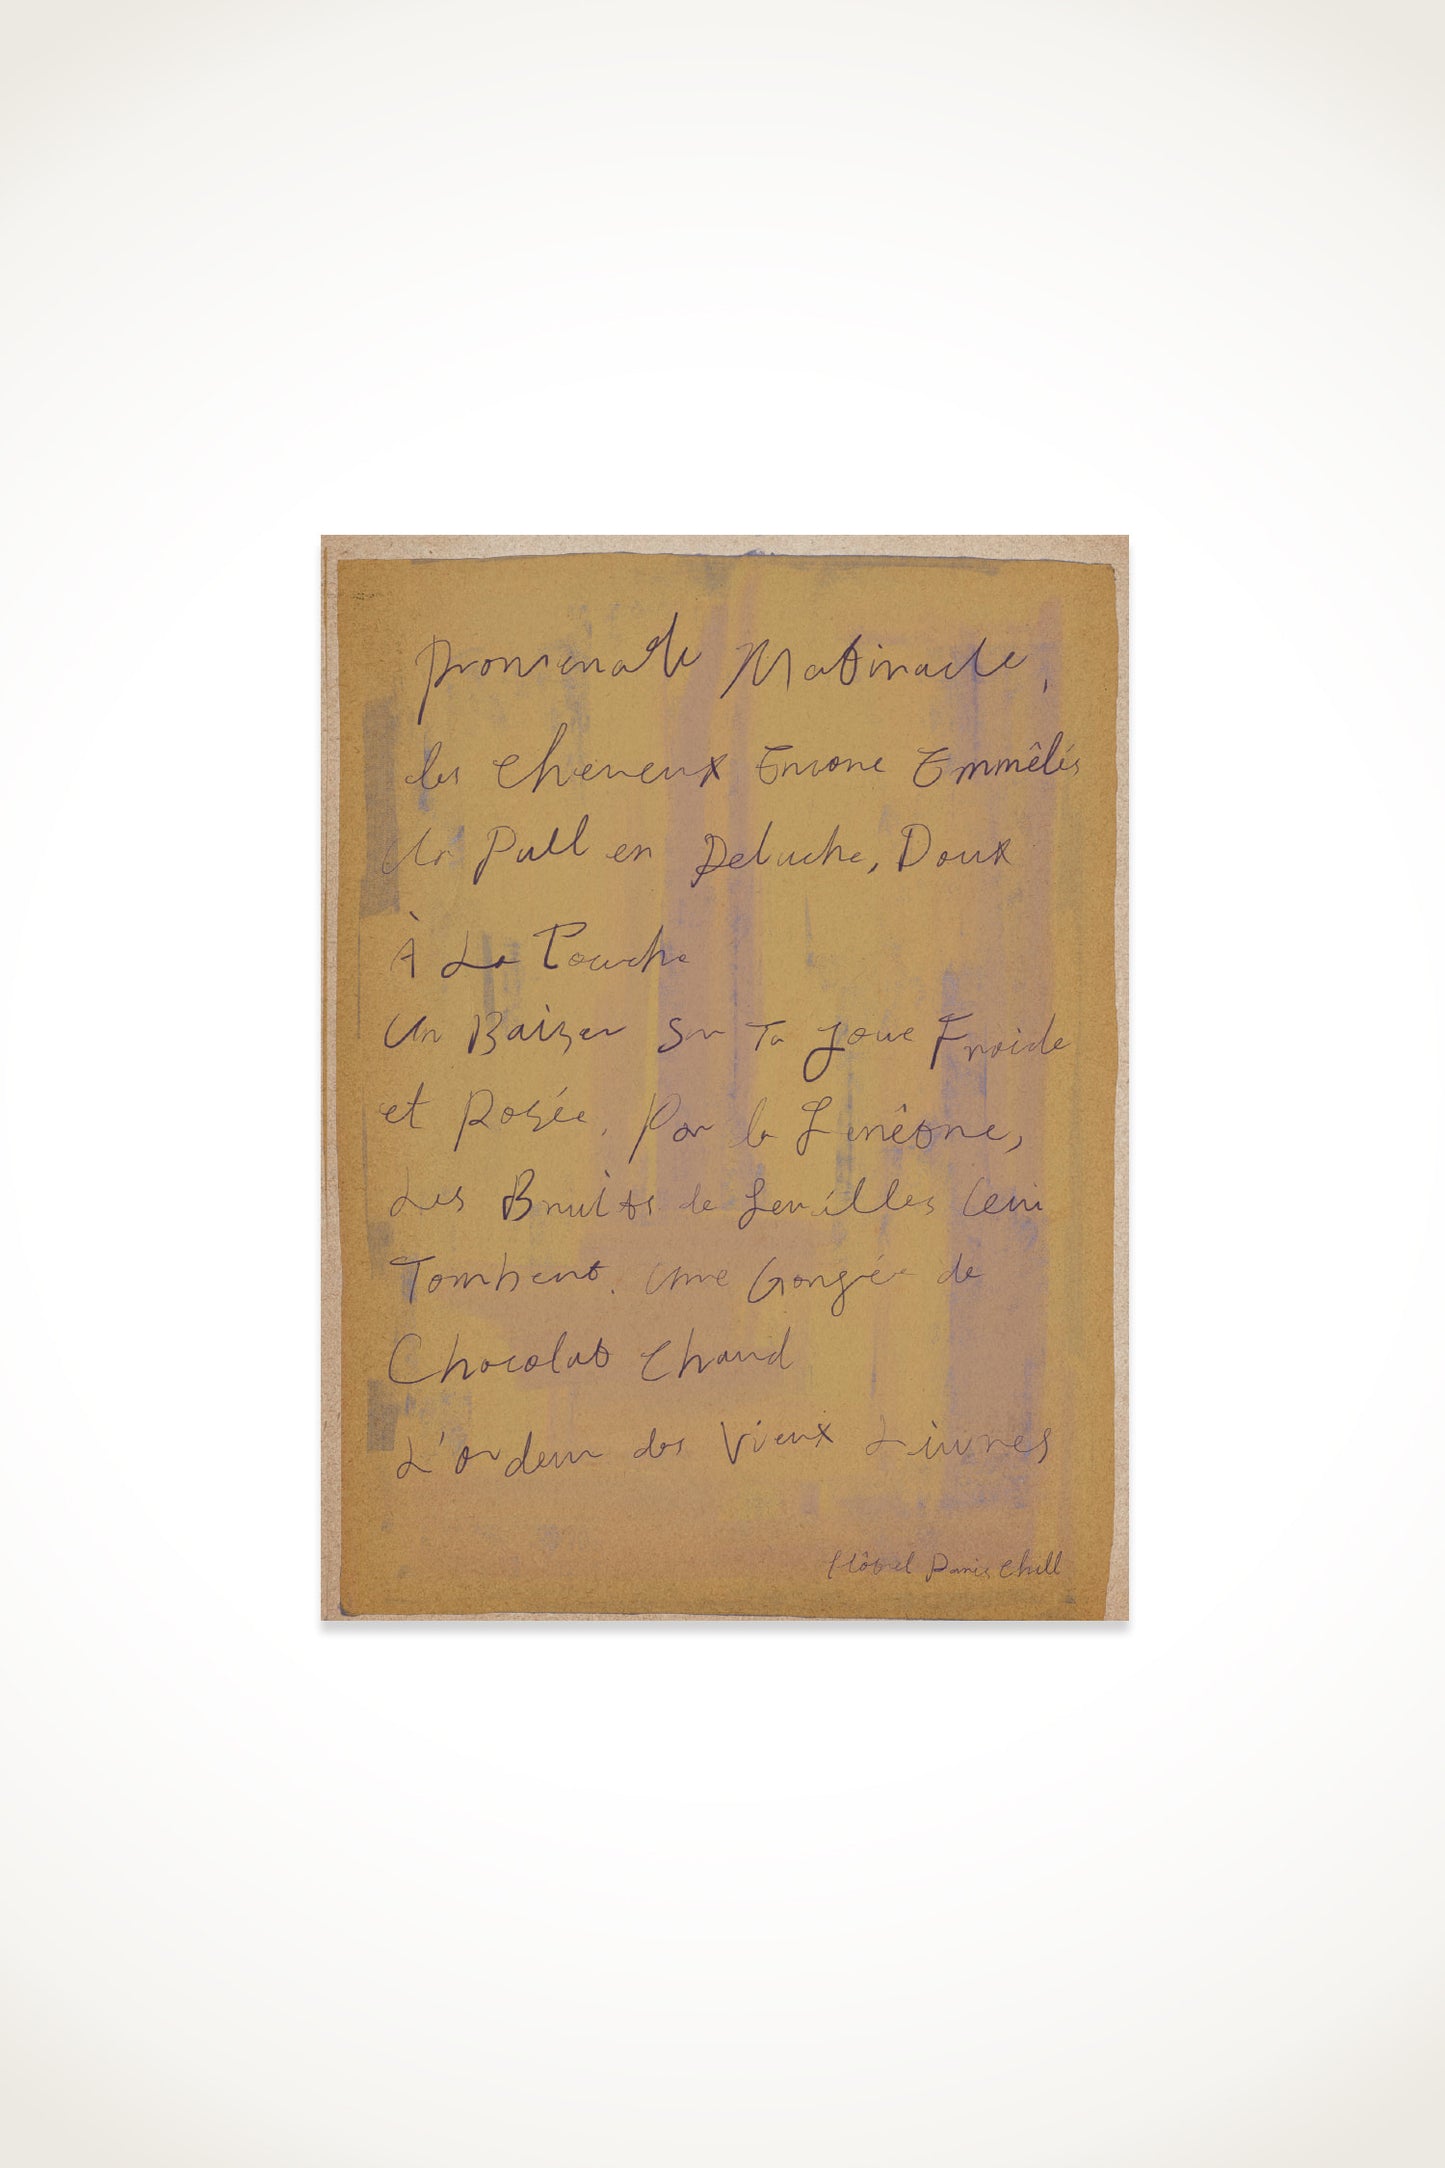 Promenade Matinale,
les Cheveux Encore Emmêlés
Un Pull en Peluche, Doux
À La Touche
Un Baiser Sur Ta Joue Froide
et Rosée. Par la Fenêtre,
Les Bruits de Feuilles Qui
Tombent. Une Gorgée de
Chocolat Chaud
L'ordeur des Vieux Livres
Hôtel Paris Chill